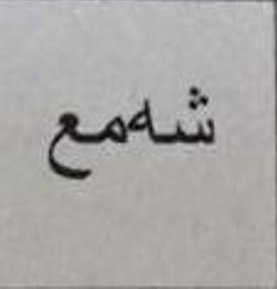 شەمع